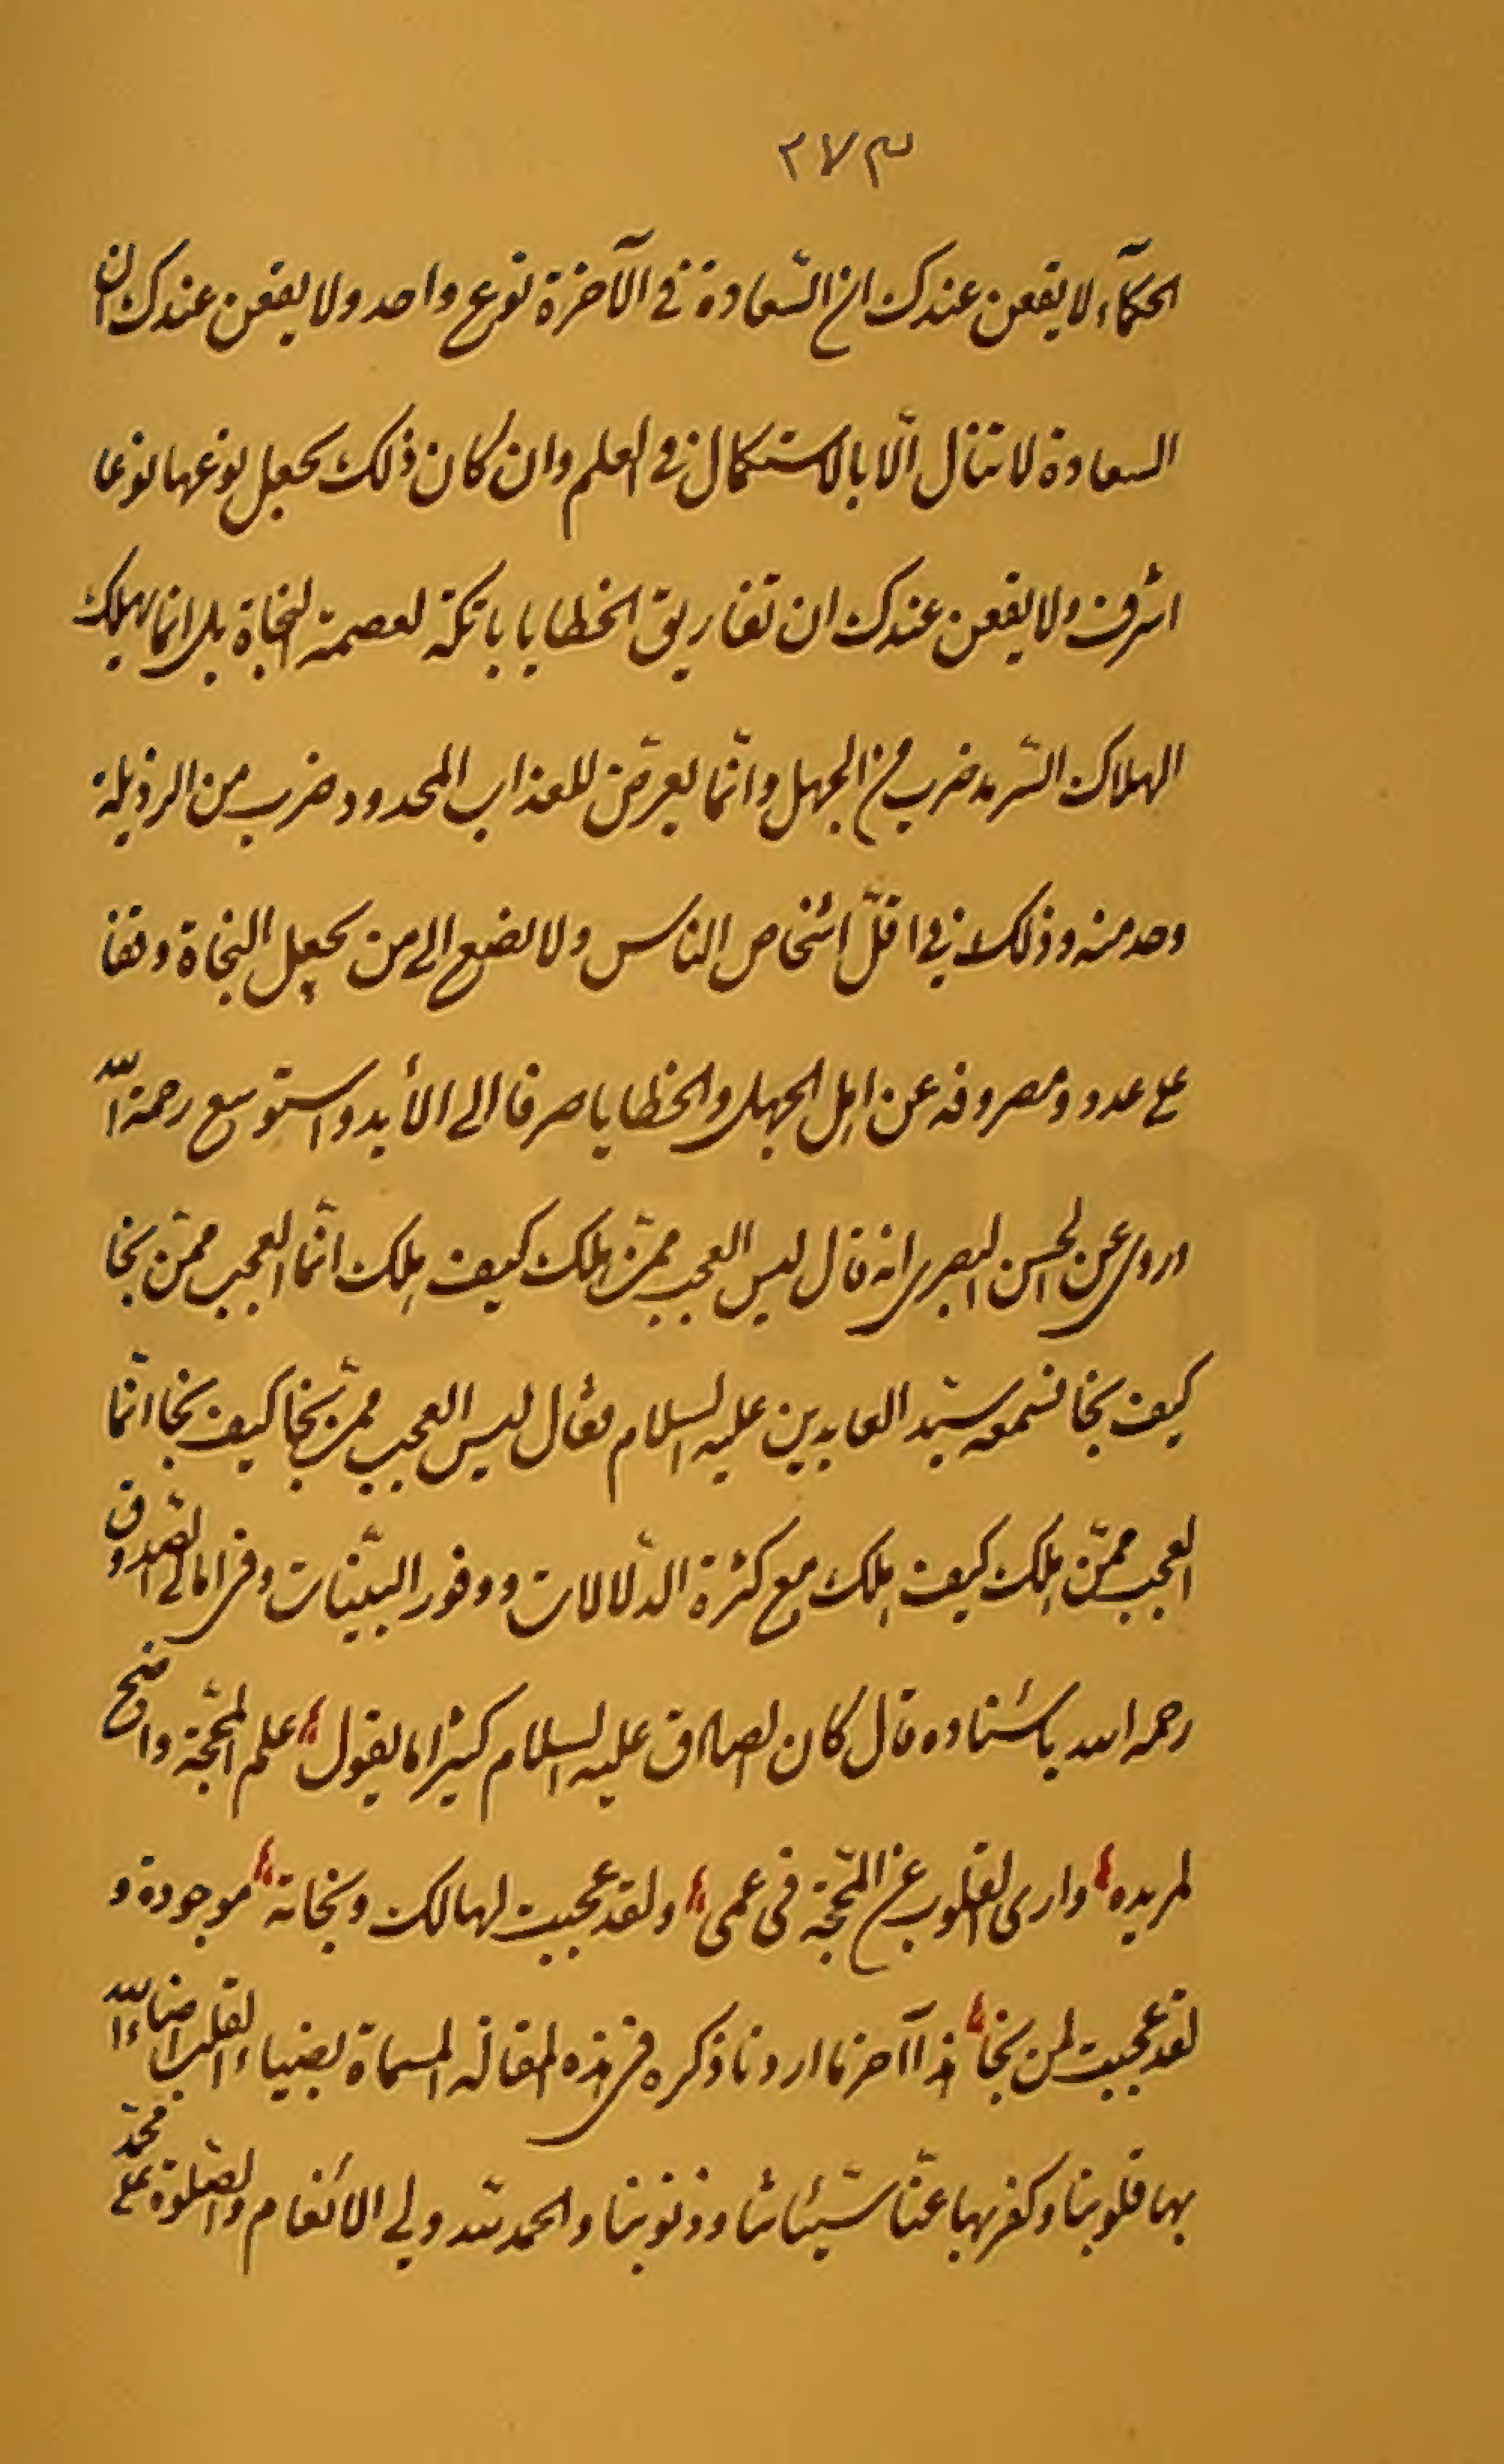 ٢٧٣
الحكمآء لا يقعن عندك ان السّعادة في الآخرة نوع واحد ولا يقعن عندك ان
السعادة لا تنال الّا بالاستكمال في العلم وان كان ذلك يجعل نوعها نوعا
اشرف ولا يقعن عندك ان تفاريق الخطايا باتكة لعصمة النجاة بل انما يهلك
الهلاك السّرمد ضرب من الجهل وانّما يعرّض للعذاب المحدود ضرب من الرذيلة
وحد منه وذلك في اقلّ اشخاص الناس ولا تصغ الى من يجعل النجاة وقفا
على عدد ومصروفه عن اهل الجهل والخطايا صرفا الى الأبد واستوسع رحمة اللّه
وروى عن الحسن البصرى انه قال ليس العجب ممّن هلك كيف هلك انّما العجب ممّن نجا
كيف نجا فسمعه سيّد العابدين عليه السلام فقال ليس العجب ممّن نجا كيف نجا انّما
العجب ممّن هلك كيف هلك مع كثرة الدّلالات ووفور البيّنات وفى امالى الصّدوق
رحمه الله باسناده قال كان الصادق عليه السلام كثيرا ما يقول علم المحجّة واضح
لمريده وارى القلوب عن المحجّة فى عمى ولقد عجبت لهالك ونجاته موجودة و
لقد عجبت لمن نجا هذا آخر ما اردنا ذكره فى هذه المقالة المسماة بضياء القلب اضاء اللّه
بها قلوبنا وكفر بها عنّا سيّئاتنا وذنوبنا والحمد للّه ولي الانعام والصّلوة على محمّد